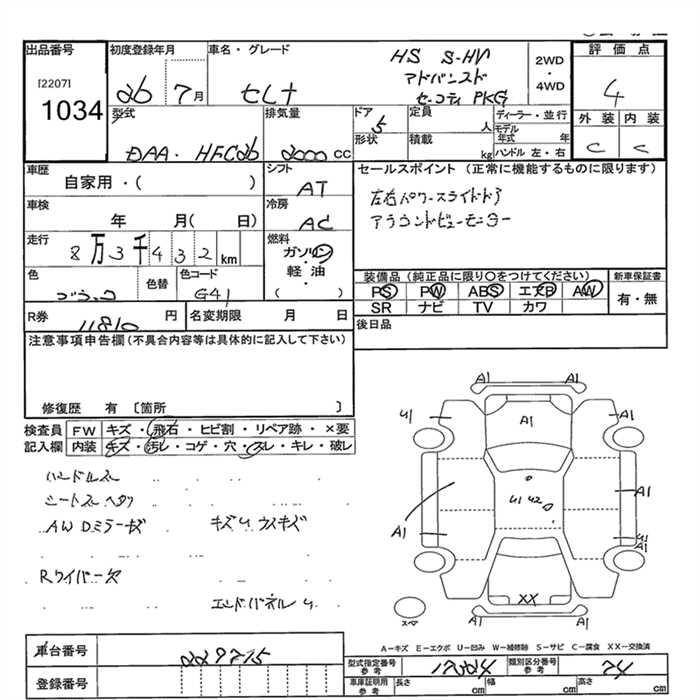 出品番号 初度登録年月 車名・グレード 評価点
[2207]
1034
26 7月 セレナ HS S-HV
アドバンスド
セーフティ PKG
2WD
・
4WD
4
型式 排気量 ドア 定員 ディーラー・並行 外装 内装
5 人 モデル年式 年
DAA・HFC26 2000 cc 形状 積載 kg ハンドル 左・右 C C
車歴 シフト セールスポイント (正常に機能するものに限ります)
自家用・( ) AT
左右パワースライドドア
車検 冷房
年 月( 日) AC
アラウンドビューモニター
走行 燃料
8万3千432 km ガソリン・軽油
( )
色 色替 色コード
ブラック G41
装備品(純正品に限り〇をつけてください) 新車保証書
PS PW ABS エアB AW 有・無
SR ナビ TV カワ
R券 11810 円 名変期限 月 日
後日品
注意事項申告欄(不具合内容等は具体的に記入して下さい)
修復歴 有 〔箇所 〕
検査員 FW キズ・飛石・ヒビ割・リペア跡・×要
記入欄 内装 キズ・汚レ・コゲ・穴・スレ・キレ・破レ
ハンドルス
シートスヘタリ
AW Dミラーキズ キズU ウスキズ
Rワイパー欠
エンドパネルU
A1 A1
U1 A1 A1
U1 U2
A1 A1
U1
A1
XX
スペア
A1 A1
A-キズ E-エクボ U-凹み W-補修跡 S-サビ C-腐食 XX-交換済
車台番号 229215
型式指定番号 参考 17024 類別区分番号 参考 24
登録番号
車庫証明用 参考 長さ cm 幅 cm 高さ cm